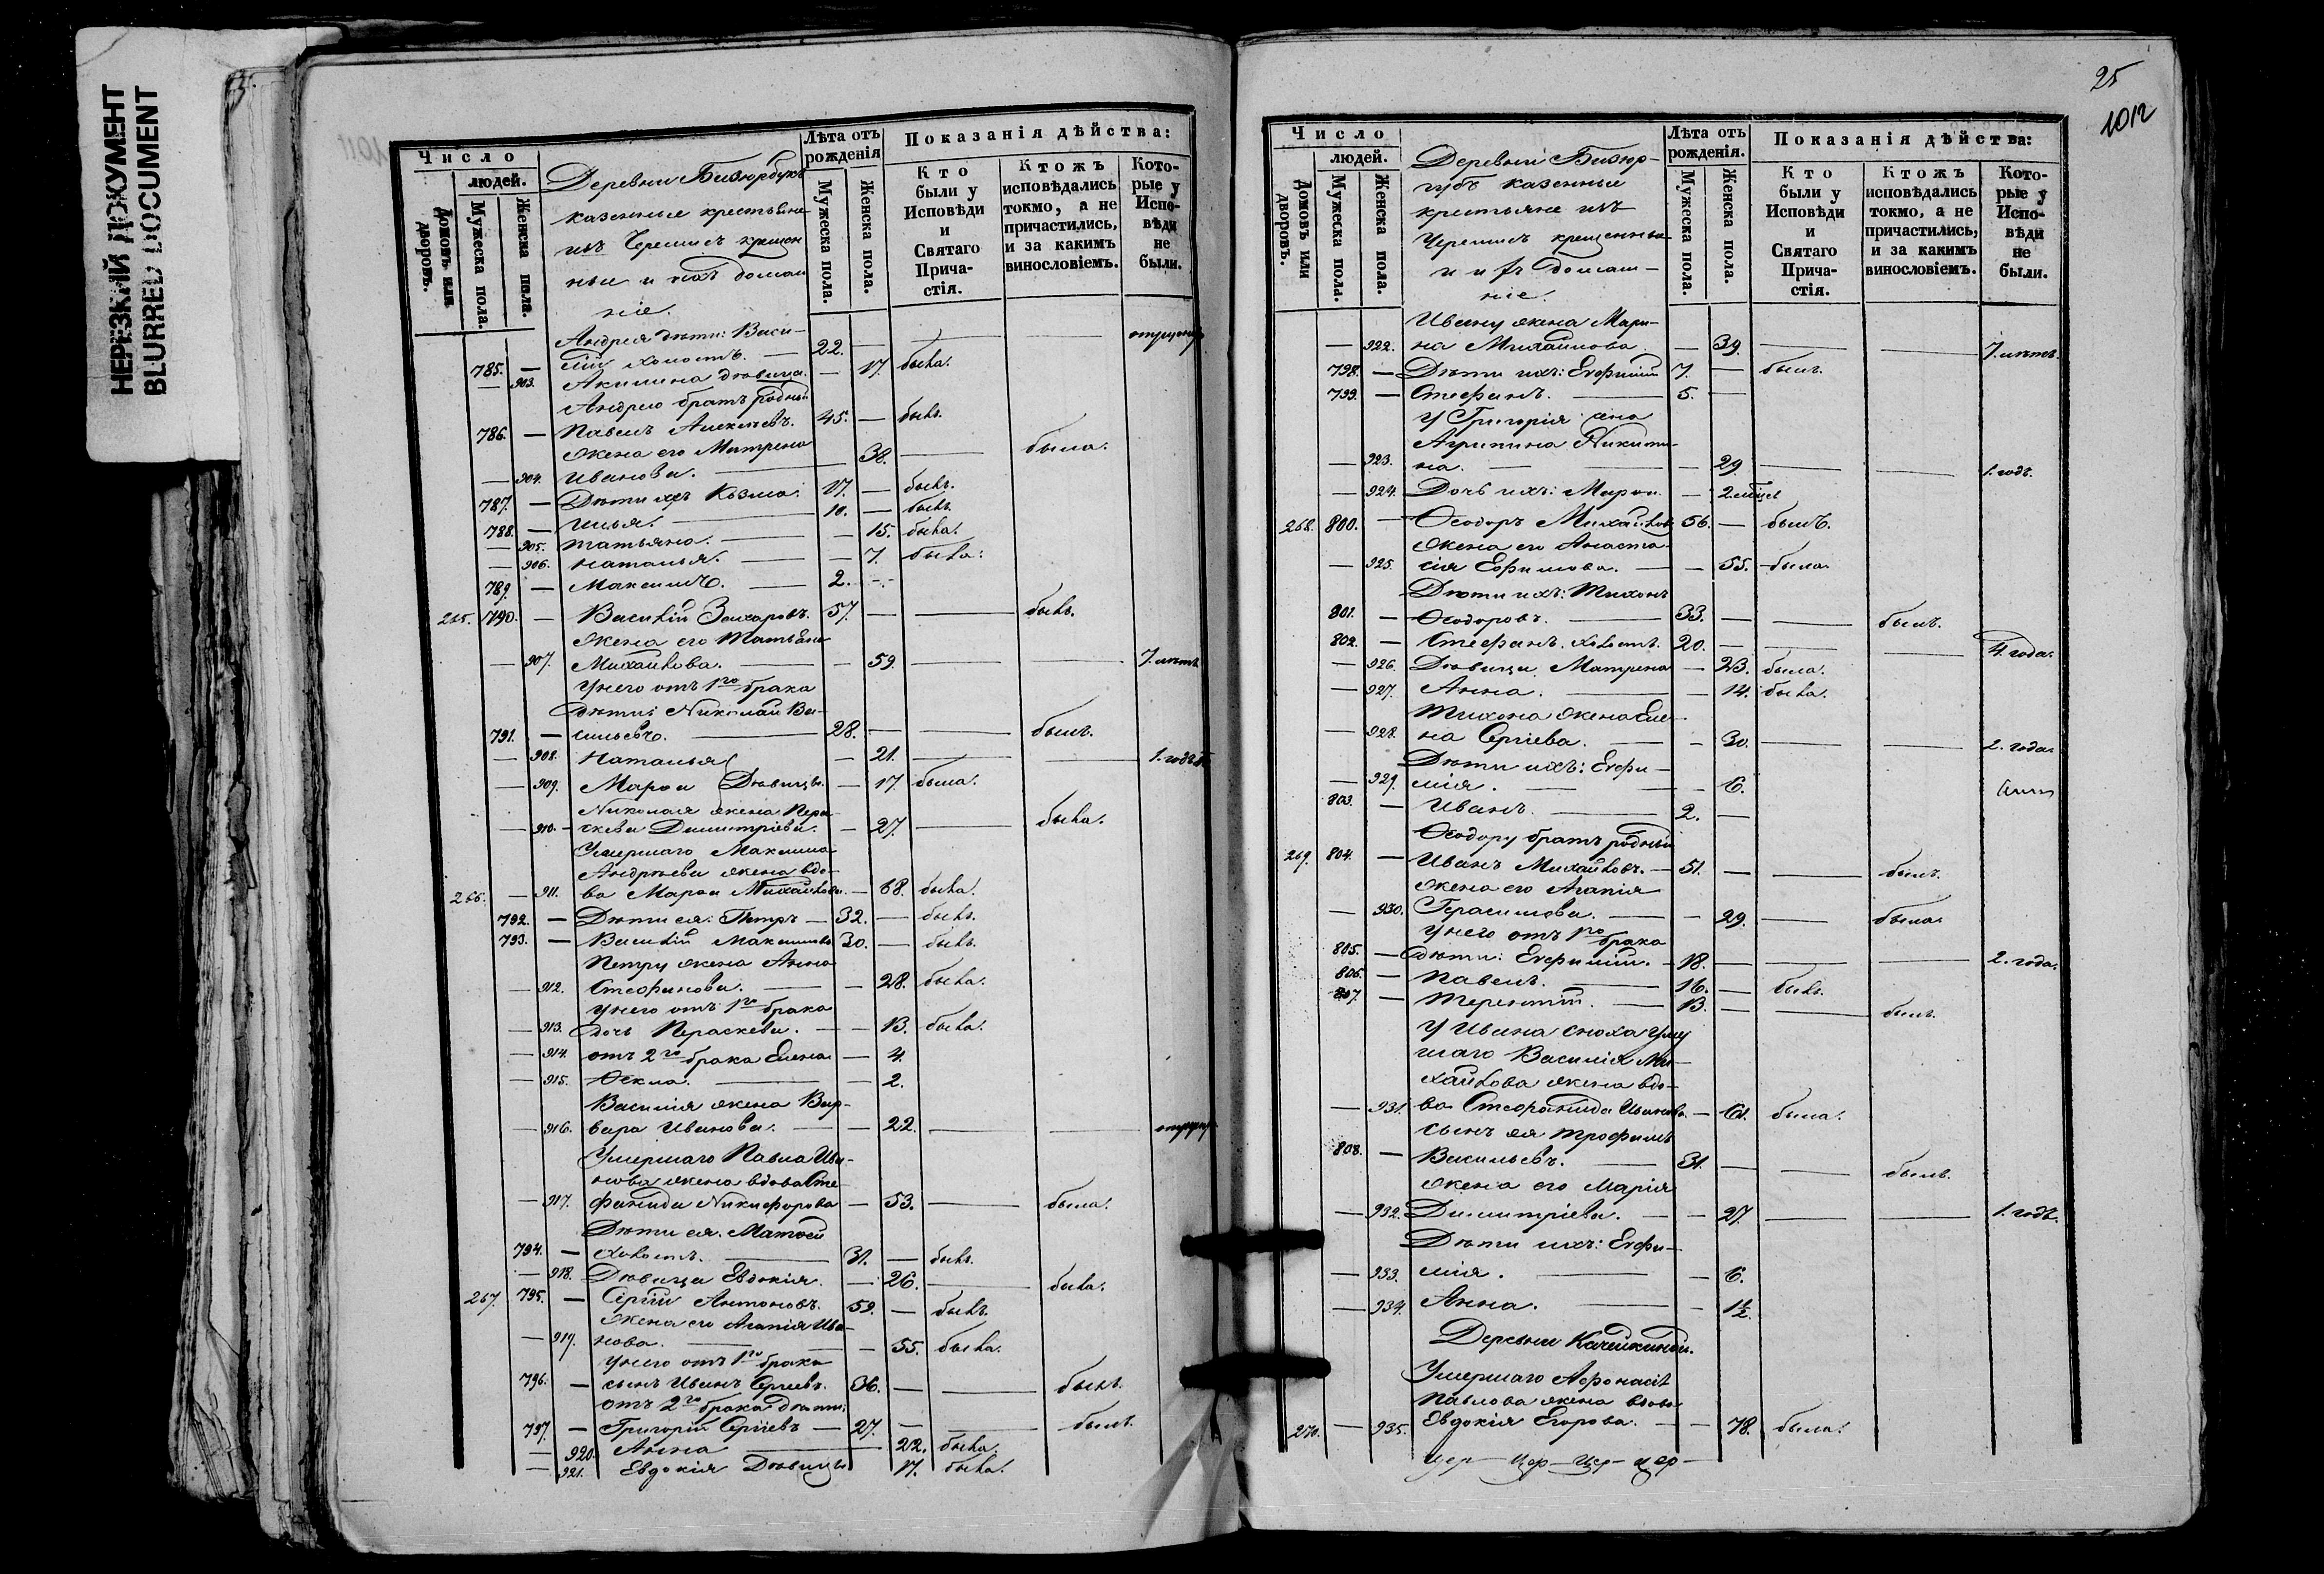 НЕРЕЗКИЙ ДОКУМЕНТ
BLURRED DOCUMENT
Число
людей.
Домовъ или дворовъ.
Мужеска пола.
Женска пола.
Лѣта отъ рожденія
Мужеска пола.
Женска пола.
Показанія дѣйства:
Кто были у Исповѣди и Святаго Причастія.
Ктожъ исповѣдались токмо, а не причастились, и за какимъ винословіемъ.
Которые у Исповѣди не были.
Деревни
казенные крестьяне
изъ Черемисъ крещен
ные и ихъ домаш
ніе.
Андрея дѣти: Васи-
785. — лій холостъ. — 22. —
— 903. Акилина дѣвица. — 17. была.
Андрею братъ родный
786. — Павелъ Алексѣевъ. 45. — былъ.
Жена его Матрена
— 904. Иванова. 38. — была.
787. — Дѣти ихъ Козма. 17. — былъ.
788. — Илья. 10. — былъ.
— 905. Татьяна. — 15. была.
— 906. Наталья. — 7. была.
789. — Максимъ. 2.
265. 790. — Василій Захаровъ. 57. — былъ.
Жена его Татьяна
— 907. Михайлова. — 59. — 7. лѣтъ.
У него отъ 1го брака
дѣти: Николай Ва-
791. — сильевъ. 28. — былъ.
— 908. Наталья — 21. — 1. годъ
— 909. Марѳа Дѣвицы. — 17. была.
Николая жена Пера-
— 910. скева Димитріева. — 27. — была.
Умершаго Максима
Андреева жена вдо-
266. — 911. ва Марѳа Михайлова. — 68. была.
792. — Дѣти ея: Петръ — 32. — былъ.
793. — Василій Максимовъ 30. — былъ.
Петра жена Анна
— 912. Стефанова. — 28. была.
У него отъ 1го брака
— 913. дочь Пераскева. — 13. была.
— 914. отъ 2го брака Елена — 4.
— 915. Ѳекла. — 2.
Василія жена Вар-
— 916. вара Иванова. — 22. —
Умершаго Павла Ива-
нова жена вдова Сте-
— 917. фанида Никифорова — 53. — была.
Дѣти ея. Матѳей
794. — холостъ. 31. — былъ.
— 918. Дѣвица Евдокія. — 26. — была.
267. 795. — Сергій Антоновъ. 59. — былъ.
Жена его Агапія Ива-
— 919. нова. — 55. была.
У него отъ 1го брака
796. — сынъ Иванъ Сергіевъ. 36. — былъ.
отъ 2го брака дѣти:
797. — Григорій Сергіевъ — 27. — былъ.
— 920. Анна 22. была.
— 921. Евдокія Дѣвицы 17. была.
25
1012
Число
людей.
Домовъ или дворовъ.
Мужеска пола.
Женска пола.
Лѣта отъ рожденія.
Мужеска пола.
Женска пола.
Показанія дѣйства:
Кто были у Исповѣди и Святаго Причастія.
Ктожъ исповѣдались токмо, а не причастились, и за какимъ винословіемъ.
Которые у Исповѣди не были.
Деревни
казенные
крестьяне изъ
Черемисъ крещенные
и ихъ домаш-
ніе.
Ивану жена Мари-
— 922. на Михайлова. — 39. — 7. лѣтъ.
798. — Дѣти ихъ: Евфимій 7. — былъ.
799. — Стефанъ. 5. —
У Григорія жена
Агрипина Никити-
— 923. на. — 29. — 1. годъ.
— 924. Дочь ихъ: Марѳа. — 2.
268. 800. — Ѳеодоръ Михайловъ 56. — былъ.
Жена его Анаста-
— 925. сія Ефимова. — 55. была.
Дѣти ихъ: Тихонъ
801. — Ѳеодоровъ. 33. — былъ.
802. — Стефанъ. холостъ. 20. — 4. года.
— 926. Дѣвица Матрена — 23. была.
— 927. Анна. — 14. была.
Тихона жена Еле-
— 928. на Сергіева. — 30. — 2. года.
Дѣти ихъ: Евфи-
— 929. мія. — 6.
803. — Иванъ. 2. —
Ѳеодору братъ родный
269. 804. — Иванъ Михайловъ. — 51. — былъ.
Жена его Агапія
— 930. Герасимова. — 29. — была.
У него отъ 1го брака
805. — дѣти: Евфимій. — 18. — 2. года.
806. — Павелъ. 16. — былъ.
807. — Терентій. 13. — былъ.
У Ивана сноха умер
шаго Василія Ми-
хайлова жена вдо-
— 931. ва Стефанида Иванова — 61. была.
сынъ ея Трофимъ
808. — Васильевъ. 31. — былъ.
Жена его Марія
— 932. Димитріева. — 27. — 1. годъ.
Дѣти ихъ: Евфи-
— 933. мія. — 6.
— 934. Анна. — 1½.
Деревни
Умершаго Афонасія
Павлова жена вдова
270. — 935. Евдокія Егорова. — 78. была.